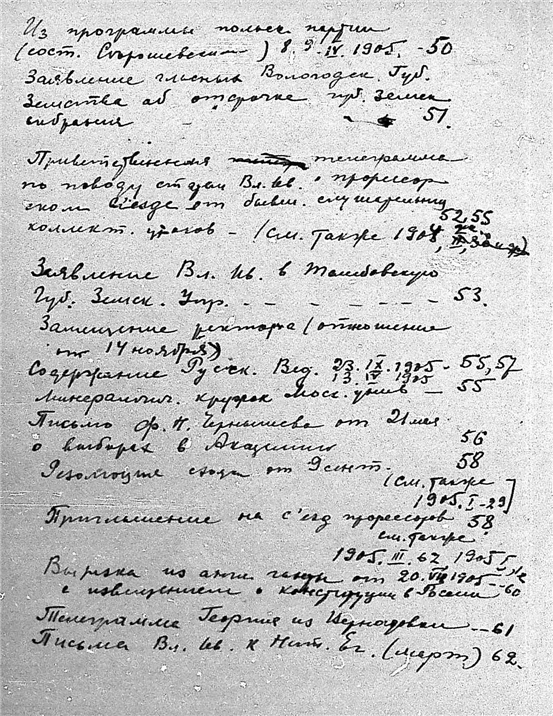 Из программы польск партии
(сост. ) 8. 9. IV. 1905. - 50
Заявление гласных Вологодск. Губ.
Земства об отсрочке губ. Земск
собрания 51.
Приветственная телеграмма
по поводу статьи Вл. Ив. о профессор
ском с'езде от бывш. слушательниц
52, 55
коллект. уроков - (См. также 1908,
Заявление Вл. Ив. в Тамбовскую
Губ. Земск. Упр. - - - - - - - 53.
Замещение ректора (отношение
от 14 ноября)
Содержание Русск. Вед. 23. IX. 1905 - 55, 57
13. IV 1905
минералогич. кружок Моск. унив - 55
Письмо Ф. Н. Чернышева от 21 мая
о выборах в Академию 56
Резолюция схода от 9 сент. 58
(См. также
1905. I - 29)
Приглашение на с'езд профессоров 58
см. также
1905. III. 67, 1905
Вырезка из англ газеты от 20. VIII 1905 - 60
с извещением о конституции в России
Телеграмма Георгия из Вернадовки - 61
Письма Вл. Ив. к Нат. Ег. (март) 62.